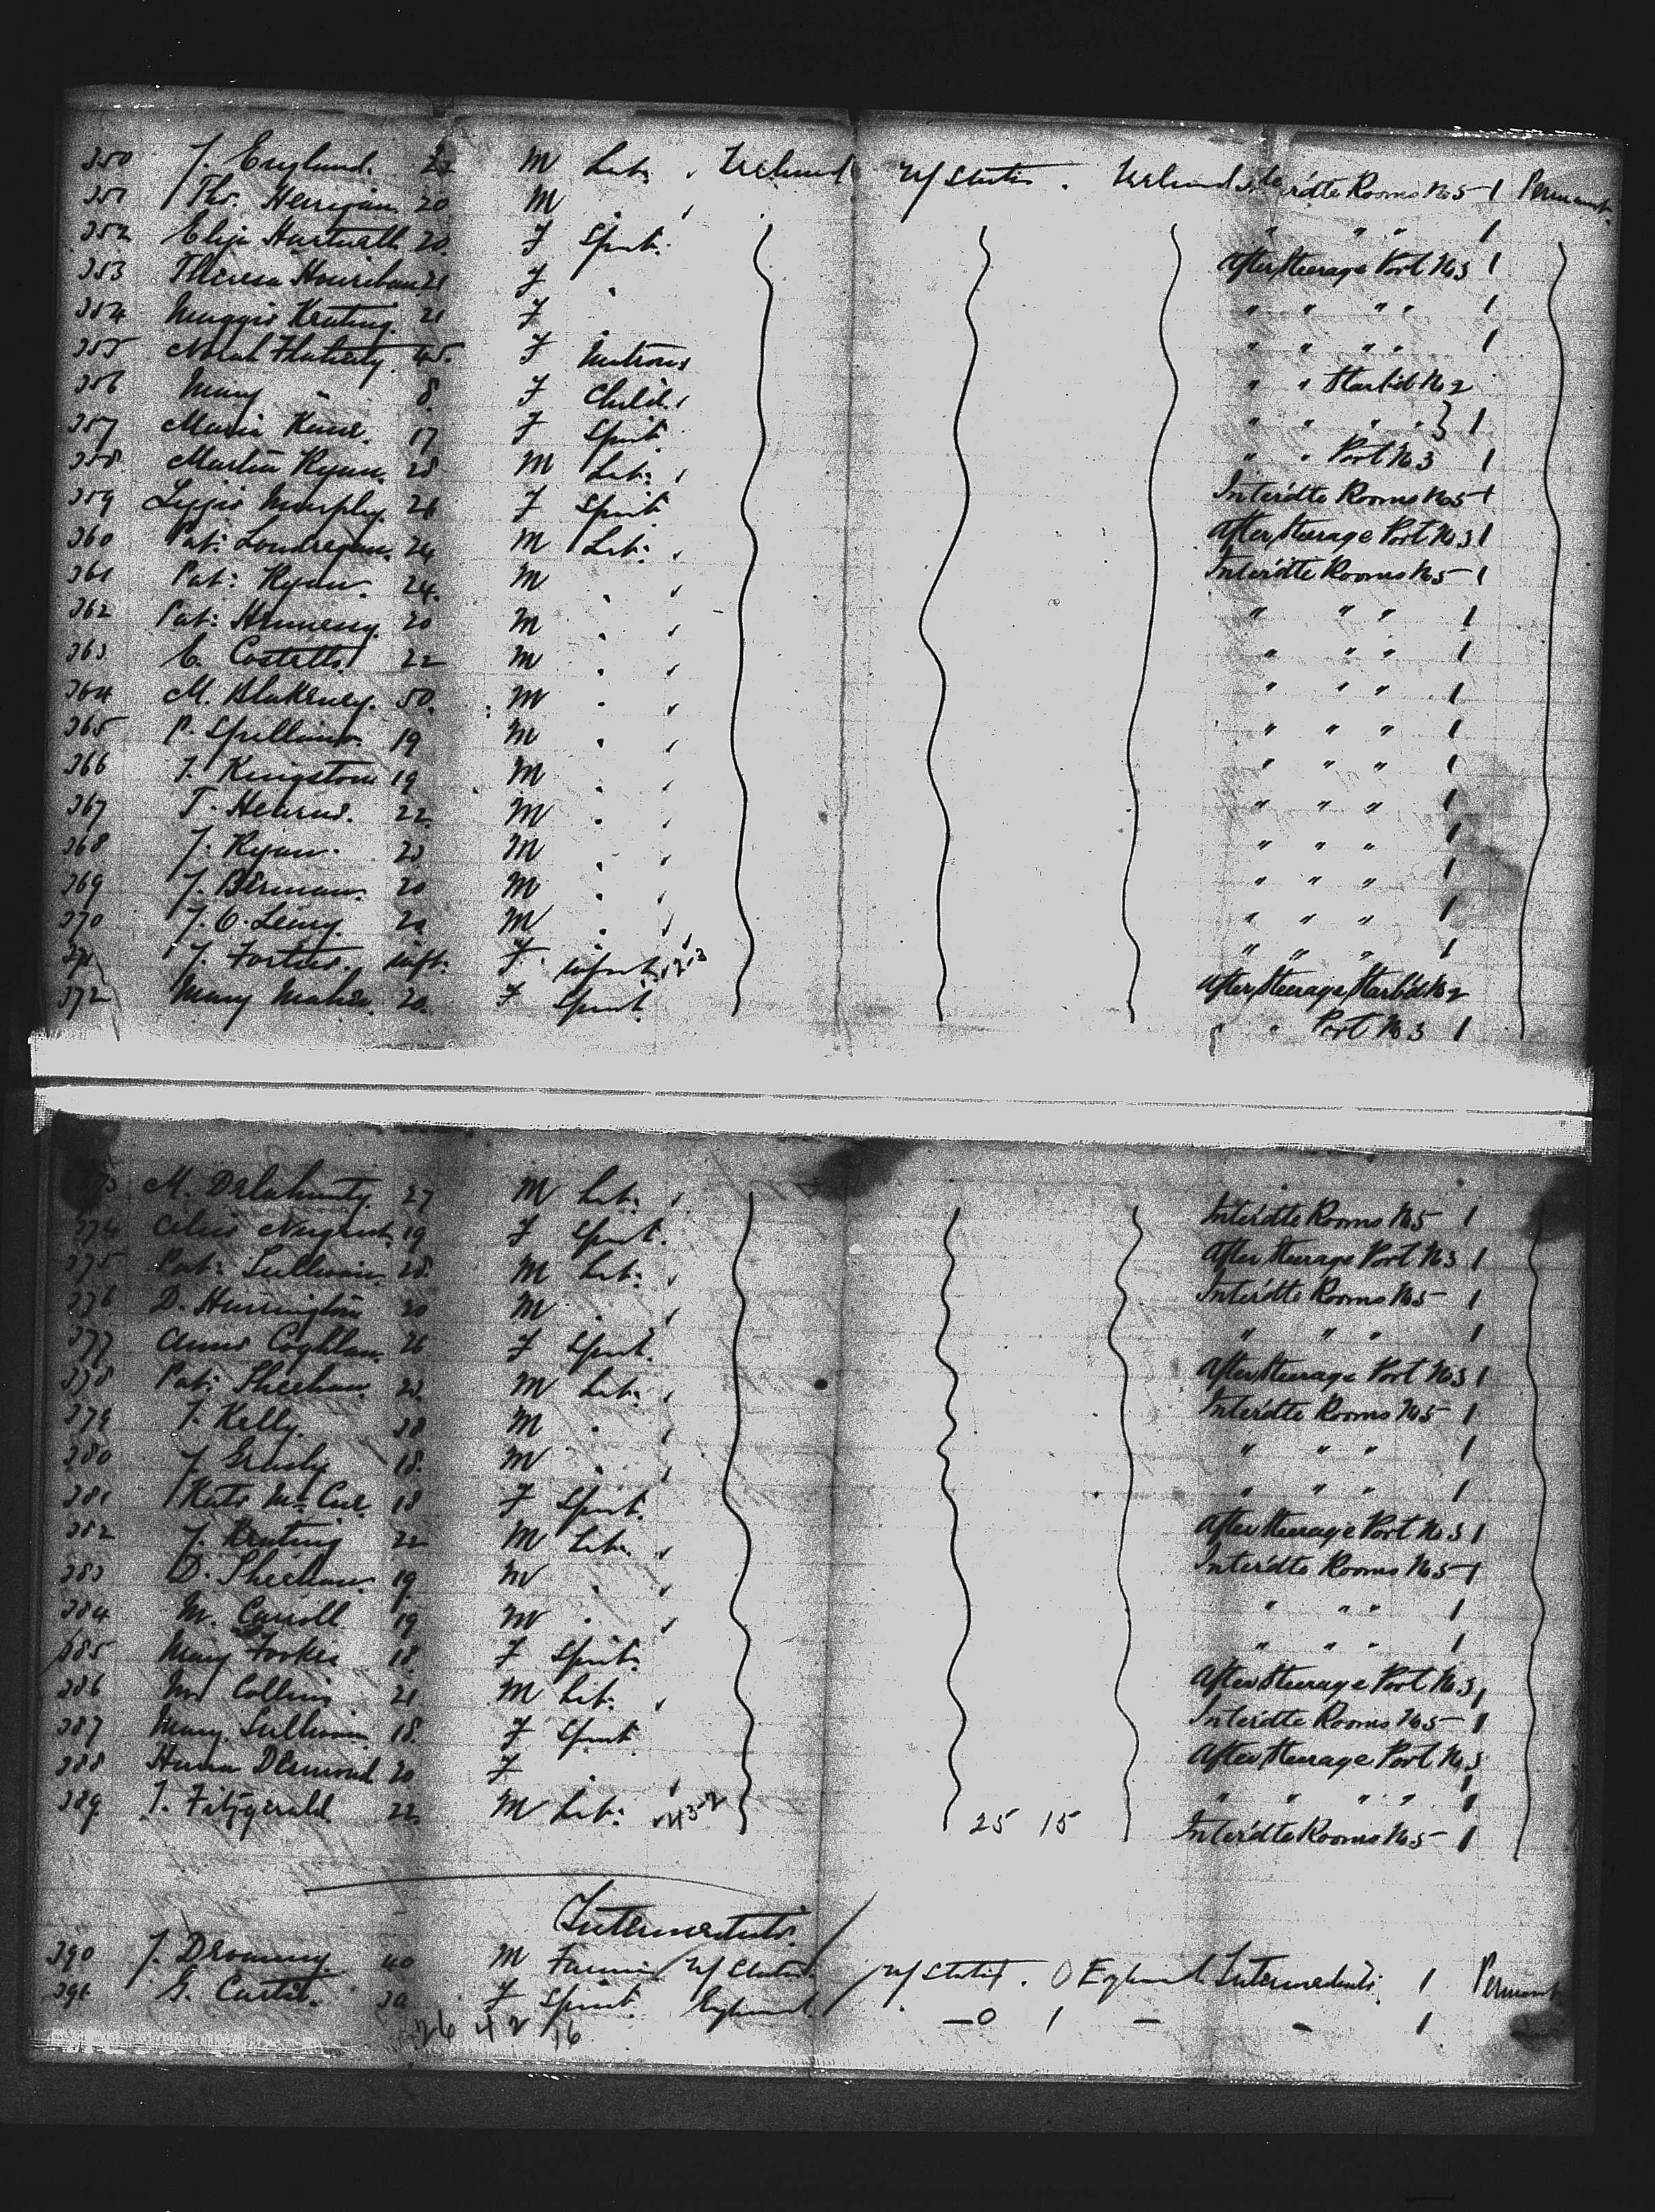 350 J. England. 22 M Lab: Ireland U/States. Ireland Inter'dte Rooms No 5 1 Permant.
351 Tho. Herrigan. 20 M " " " " 1
352 Eliza Hartnett 20. F Spint. After Steerage Port No 3 1
353 Theresa Hourihan. 21 F " " " " " 1
354 Maggie Keating. 21 F " " " " " 1
355 Norah Flaherty. 45. F Matron " " Starb'd No 2
356 Mary " 8. F Child. " " " " } 1
357 Maria Kane. 17 F Spint " " Port No 3 1
358 Martin Ryan. 28 M Lab: Inter'dte Rooms No 5 1
359 Lizzie Murphy. 21 F Spint After Steerage Port No 3 1
360 Pat: Londregan. 24 M Lab: Inter'dte Rooms No 5 1
361 Pat: Ryan. 24. M " " " " 1
362 Pat: Hennessy. 20 M " " " " 1
363 C. Costello. 22 M " " " " 1
364 M. Blakeney. 50. M " " " " 1
365 P. Spillane. 19 M " " " " 1
366 J. Kingston 19 M " " " " 1
367 T. Hearne. 22. M " " " " 1
368 J. Ryan. 23 M " " " " 1
369 J. 20 M " " " " 1
370 J. O. Leary. 21 M " " " " 1
371 J. inft. F infant. After Steerage Starb'd No 2
372 Mary 20. F Spint. " " Port No 3 1
373 M. Delahunty. 27 M Lab: Inter'dte Rooms No 5 1
374 Nugent. 19 F Spint. After Steerage Port No 3 1
375 Pat: Sullivan. 28. M Lab: Inter'dte Rooms No 5 1
376 D. Harrington 20 M " " " " 1
377 Anne Coghlan. 26 F Spint. After Steerage Port No 3 1
378 Pat: Sheehan. 22. M Lab: Inter'dte Rooms No 5 1
379 J. Kelly. 28 M " " " " 1
380 J. 18. M " " " " 1
381 Kate 18 F Spint. After Steerage Port No 3 1
382 J. Keating 22 M Lab: Inter'dte Rooms No 5 1
383 D. Sheehan. 19. M " " " " 1
384 M. Carroll 19 M " " " " 1
385 Mary 18. F Spint. After Steerage Port No 3 1
386 M. Collins 21 M Lab: Inter'dte Rooms No 5 1
387 Mary Sullivan. 18. F Spint After Steerage Port No 3
388 Desmond 20 F " " " " " 1
389 J. Fitzgerald. 22. M Lab: 25 15 Inter'dte Rooms No 5 1
Intermediate.
390 J. 40 M Farmer U/States. U/States. 0 England Intermediate 1 Permant.
391 G. Curtis. F Spint. England. — 0 1 — — 1
26 42 16